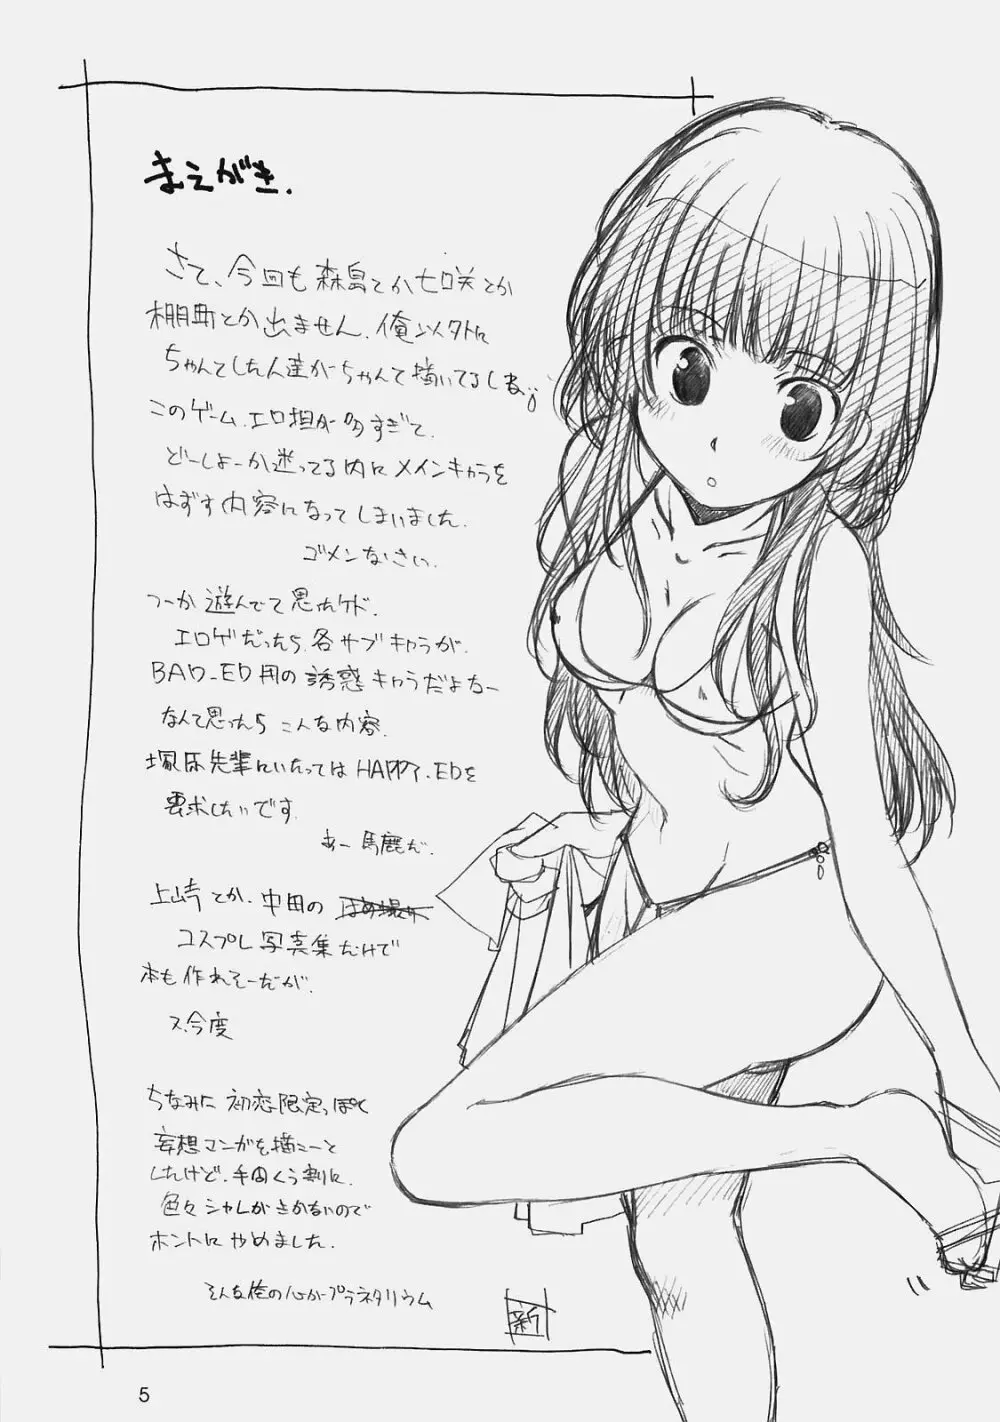 まえがき.
さて、今回も森島とか七咲とか
棚町とか出ません。俺以外に
ちゃんとした人達がちゃんと描いてるしね。
このゲーム、エロ担が多すぎて、
どーしよーか迷ってる内にメインキャラを
はずす内容になってしまいました。
ゴメンなさい。
つーか遊んでて思ったケド、
エロゲだったら各サブキャラが、
BAD_ED用の誘惑キャラだよなー
なんて思ったらこんな内容。
塚原先輩にいたってはHAPPY.EDを
要求したいです。
あー馬鹿だ。
上崎とか、中田の
コスプレ写真集だけで
本も作れそーだが、
ス、今度
ちなみに初恋限定っぽく
妄想マンガを描こーと
したけど、手間くう割に、
色々シャレがきかないので
ホントにやめました。
そんな俺の心がプラネタリウム
新
5